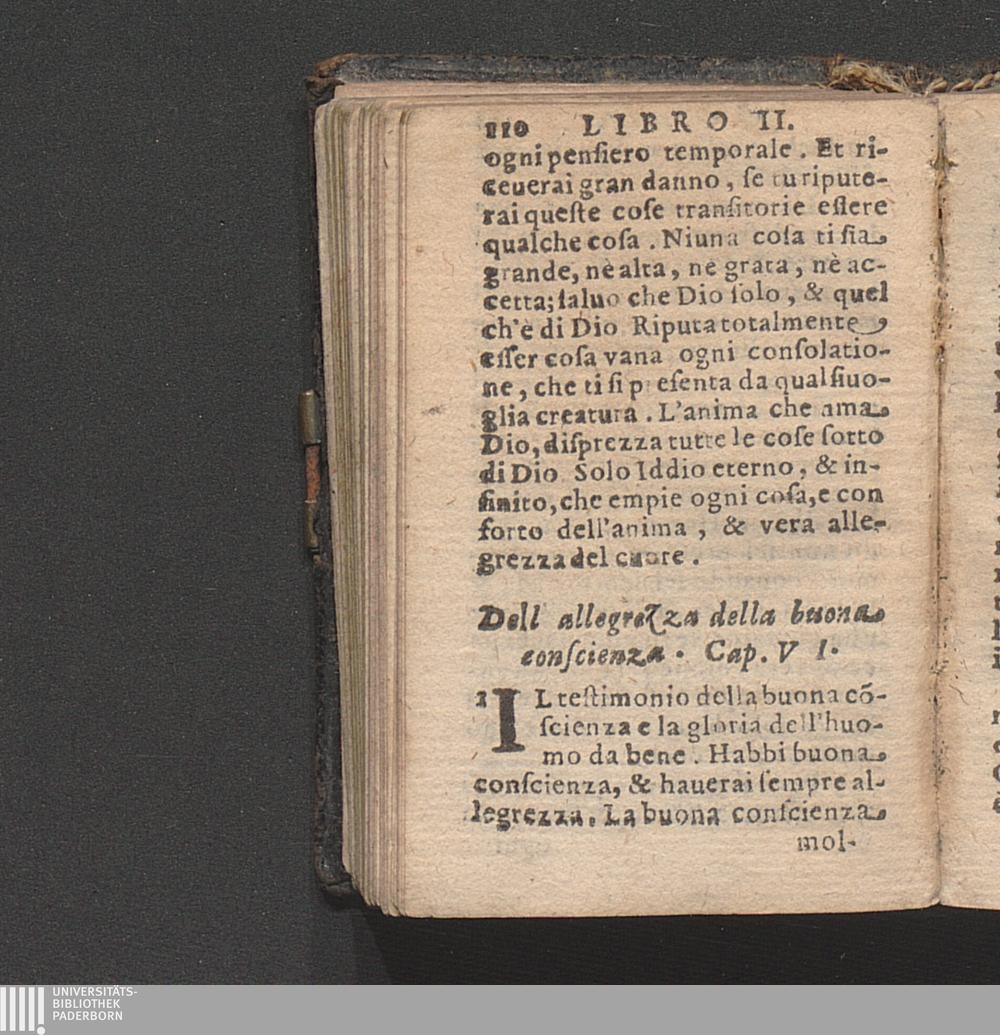 110 LIBRO II.
ogni penſiero temporale. Et ri-
ceuerai gran danno, ſe tu ripute-
rai queſte coſe tranſitorie eſſere
qualche coſa. Niuna coſa ti ſia
grande, nè alta, nè grata, nè ac-
cetta; ſaluo che Dio ſolo, & quel
ch'è di Dio Riputa totalmente
eſſer coſa vana ogni conſolatio-
ne, che ti ſi preſenta da qualſiuo-
glia creatura. L'anima che ama
Dio, diſprezza tutte le coſe ſotto
di Dio Solo Iddio eterno, & in-
finito, che empie ogni coſa, e con
forto dell'anima, & vera alle-
grezza del cuore.
Dell' allegrezza della buona
conſcienza. Cap. V I.
1 IL teſtimonio della buona cõ-
ſcienza e la gloria dell'huo-
mo da bene. Habbi buona
conſcienza, & hauerai ſempre al-
legrezza. La buona conſcienza
mol-
UNIVERSITÄTS-
BIBLIOTHEK
PADERBORN